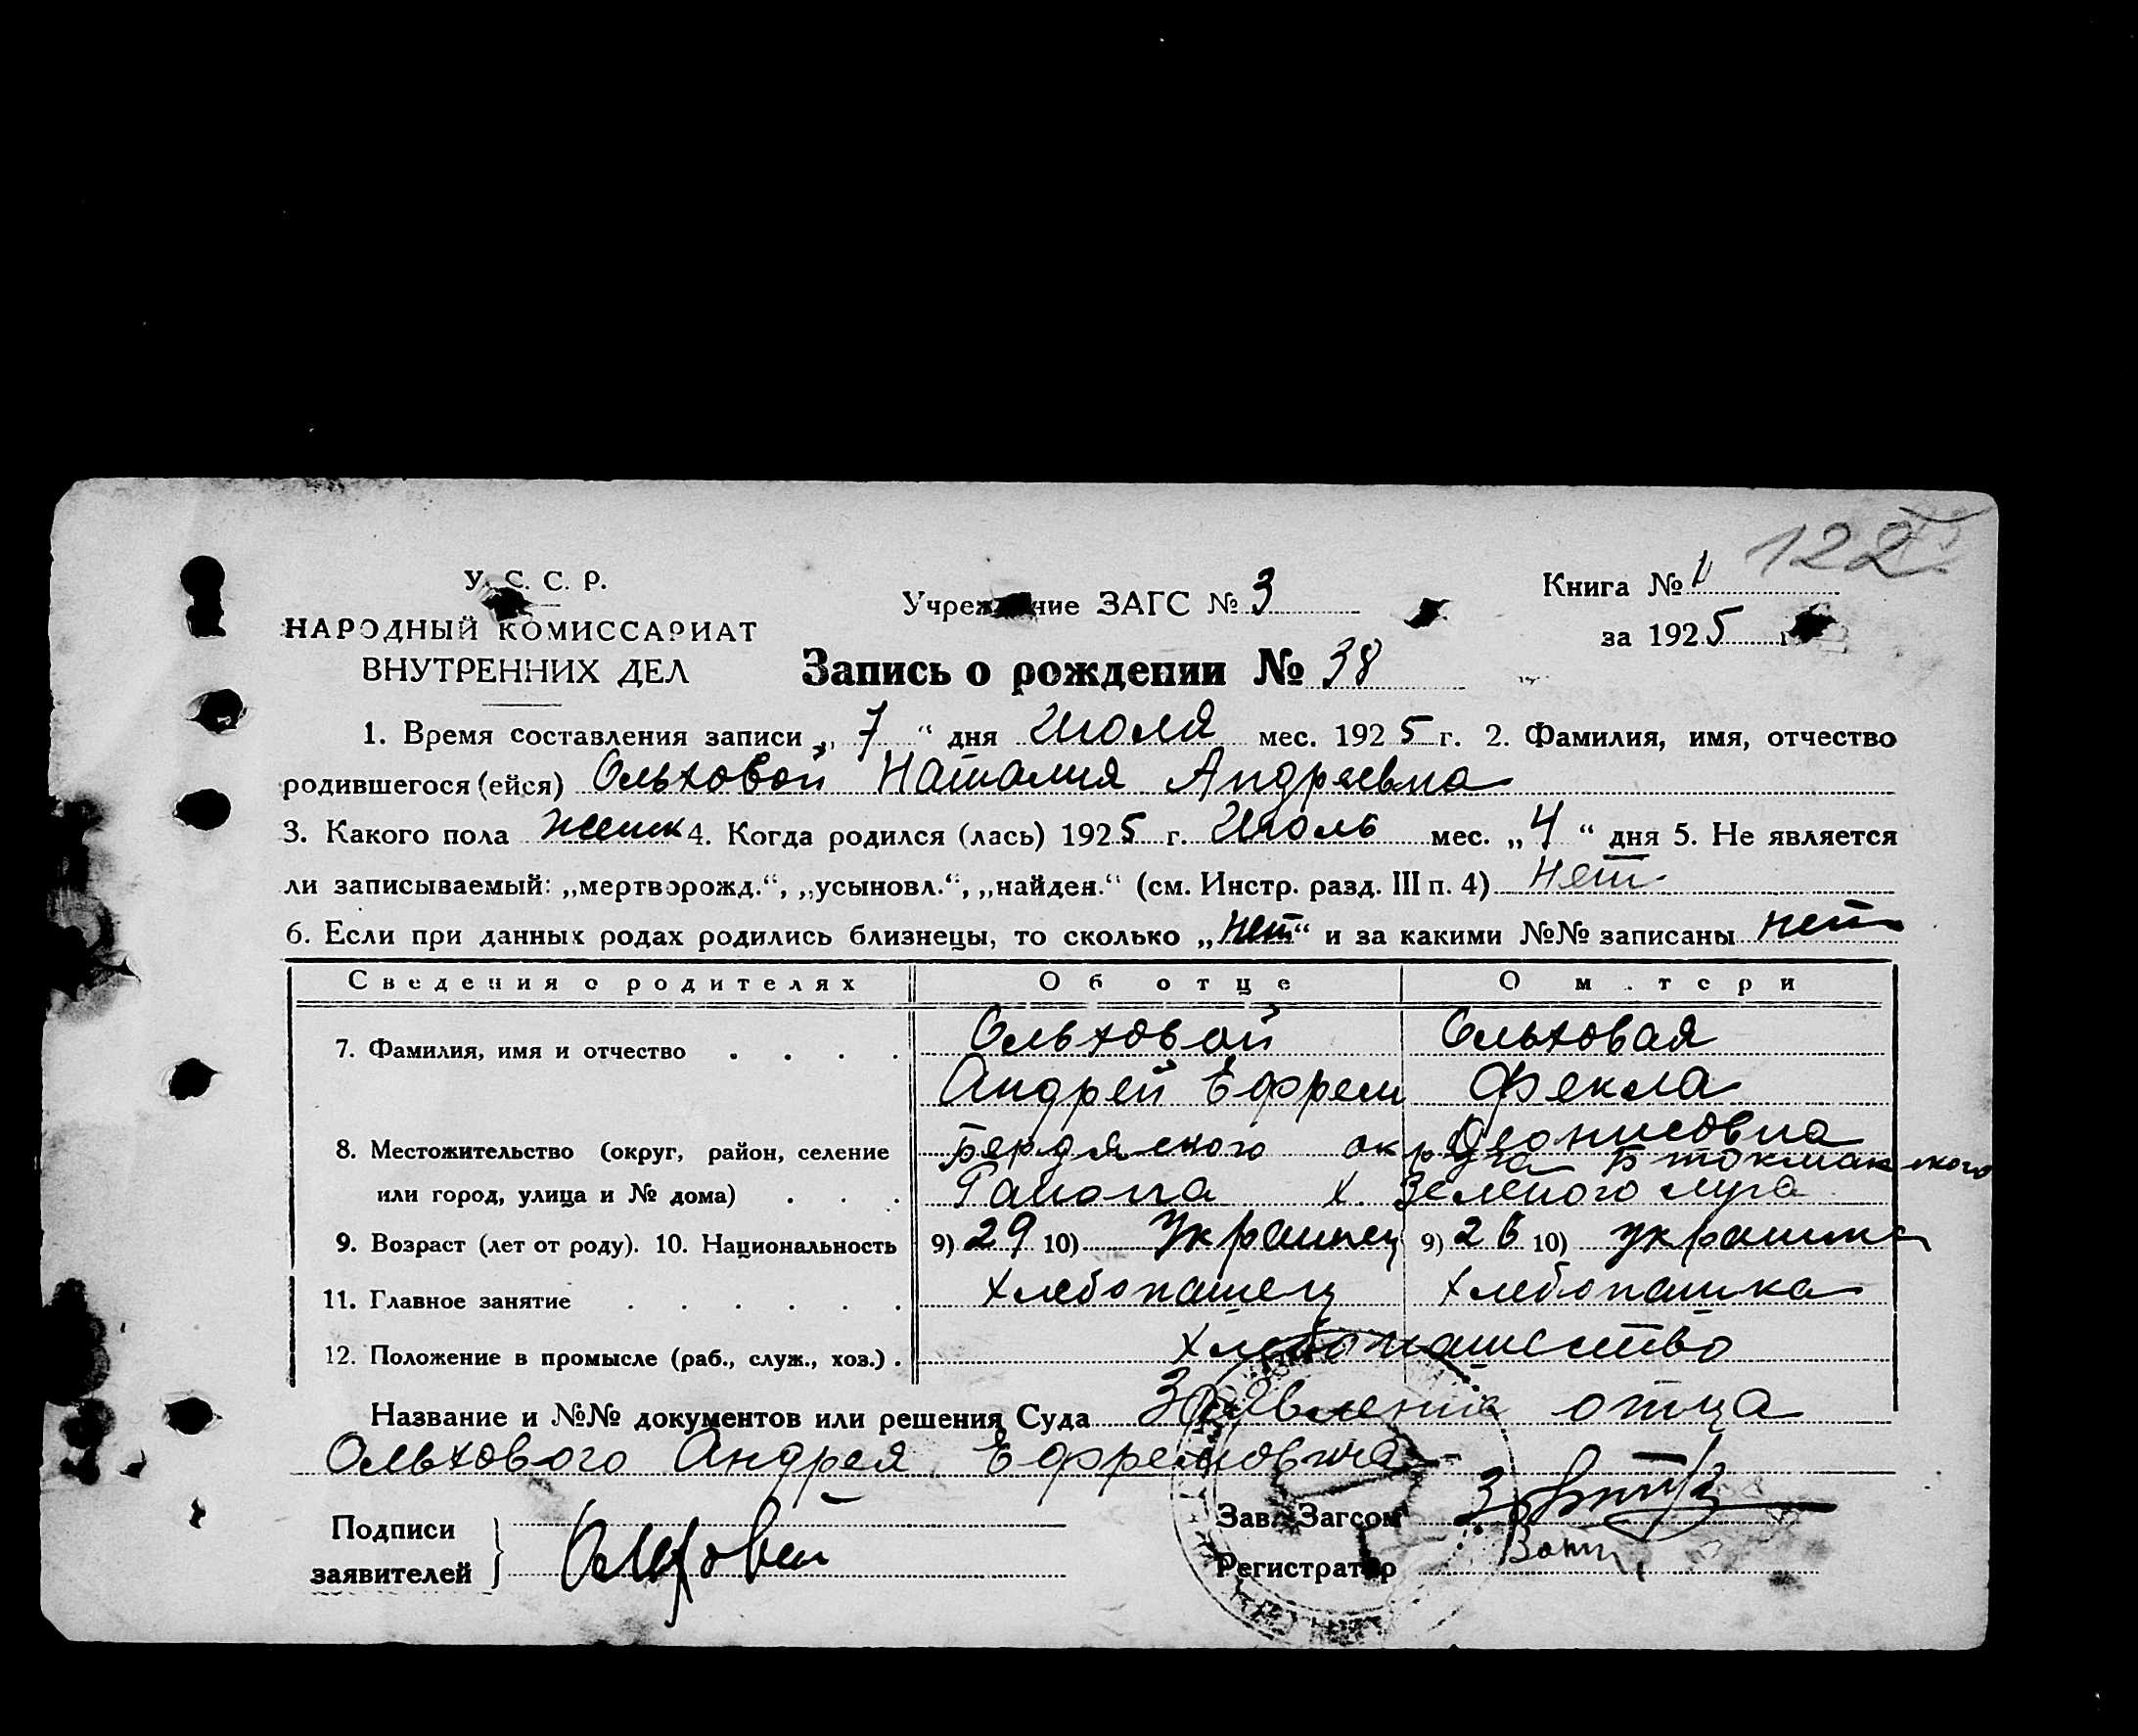 122
У. С. С. Р.
НАРОДНЫЙ КОМИССАРИАТ
ВНУТРЕННИХ ДЕЛ
Учреждение ЗАГС № 3
Книга №
за 1925 г.
Запись о рождении № 38
1. Время составления записи „ 7 “ дня Июля мес. 1925 г. 2. Фамилия, имя, отчество
родившегося (ейся) Ольховой Наталия Андреевна
3. Какого пола женск 4. Когда родился (лась) 1925 г. Июль мес. „ 4 “ дня 5. Не является
ли записываемый: „мертворожд.“, „усыновл.“, „найден.“ (см. Инстр. разд. III п. 4) Нет
6. Если при данных родах родились близнецы, то сколько „нет“ и за какими №№ записаны нет
Сведения о родителях Об отце О м.тери
7. Фамилия, имя и отчество . . . . Ольховой Ольховая
Андрей Ефрем Фекла
Деонисовна
8. Местожительство (округ, район, селение Бердянского округа Б Токмакского
или город, улица и № дома) . . . Района х. Зеленого луга
9. Возраст (лет от роду). 10. Национальность 9) 29 10) Украинец 9) 26 10) украинка
11. Главное занятие . . . . . . Хлебопашец Хлебопашка
12. Положение в промысле (раб., служ., хоз.) . Хлебопашество
Название и №№ документов или решения Суда Заявление отца
Ольхового Андрея Ефремовича
Подписи
заявителей } Ольховой
Зав. Загсом
Регистратор